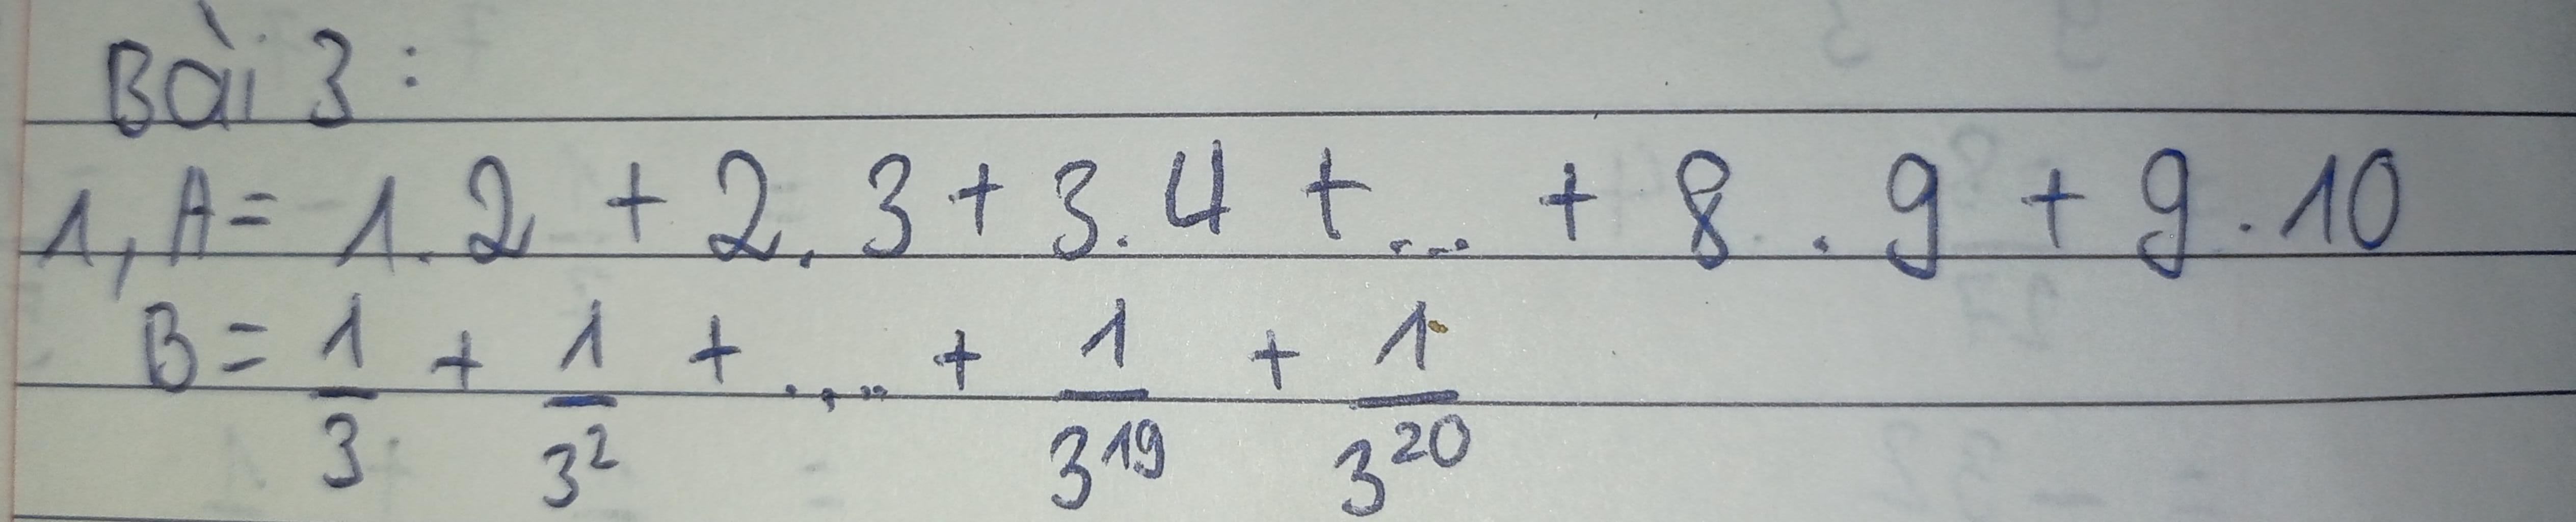 Bài 3:
1, A = 1.2 + 2.3 + 3.4 + ... + 8.9 + 9.10
B = 1/3 + 1/3² + .... + 1/3¹⁹ + 1/3²⁰